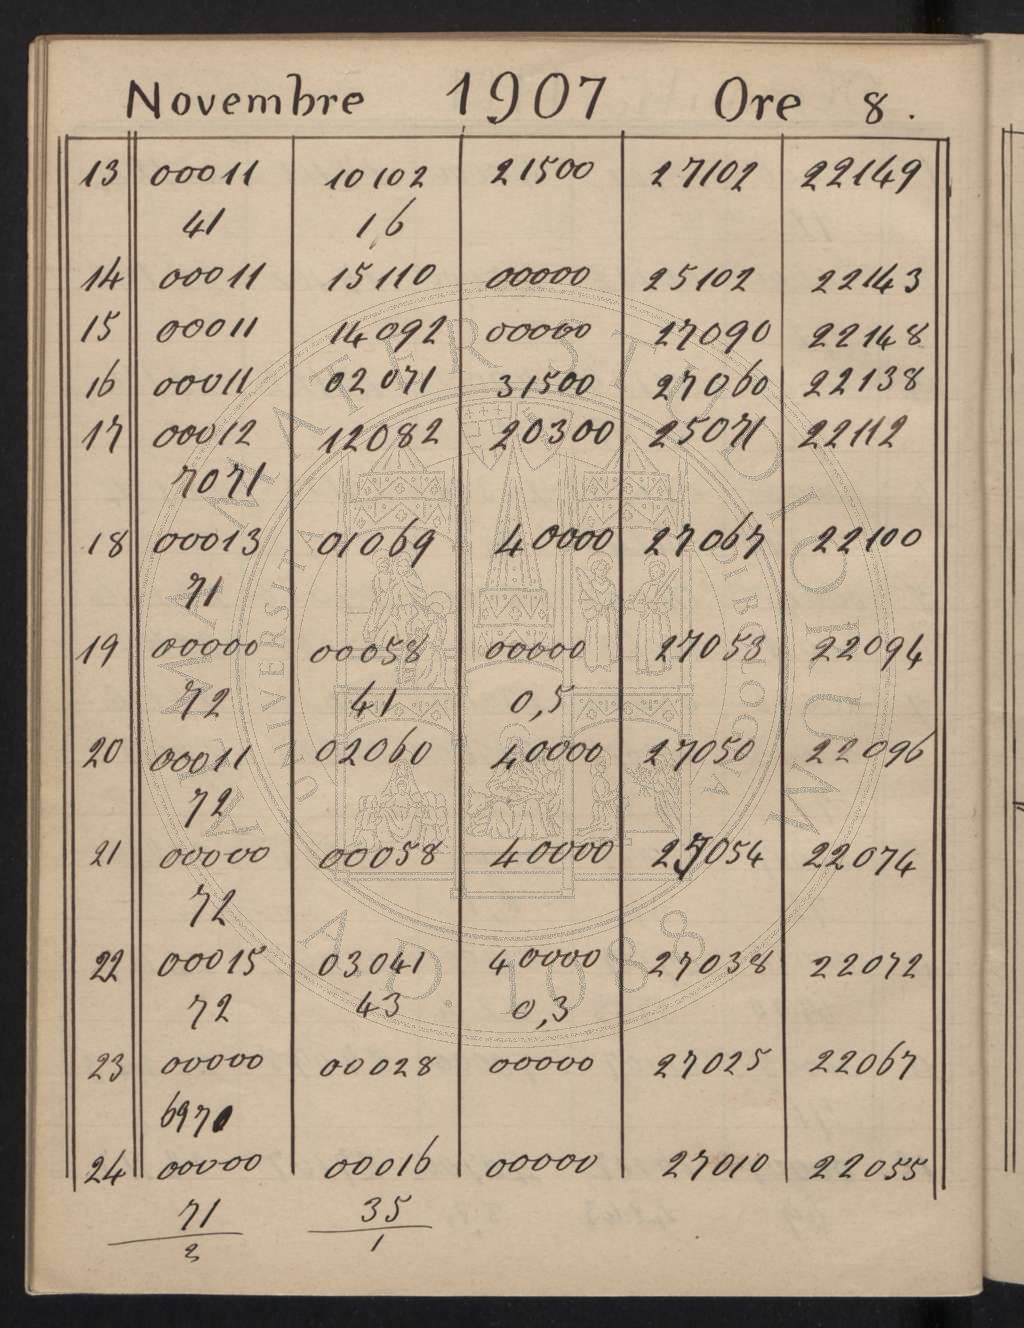 Novembre 1907 Ore 8.
13 00011 10102 21500 27102 22149
41 1,6
14 00011 15110 00000 25102 22143
15 00011 14092 00000 27090 22148
16 00011 02071 31500 27060 22138
17 00012 12082 20300 25071 22112
7071
18 00013 01069 40000 27067 22100
71
19 00000 00058 00000 27053 22094
72 41 0,5
20 00011 02060 40000 27050 22096
72
21 00000 00058 40000 27054 22074
72
22 00015 03041 40000 27038 22072
72 43 0,3
23 00000 00028 00000 27025 22067
6970
24 00000 00016 00000 27010 22055
71 35
3 1
ALMA MATER STUDIORUM
A.D. 1088